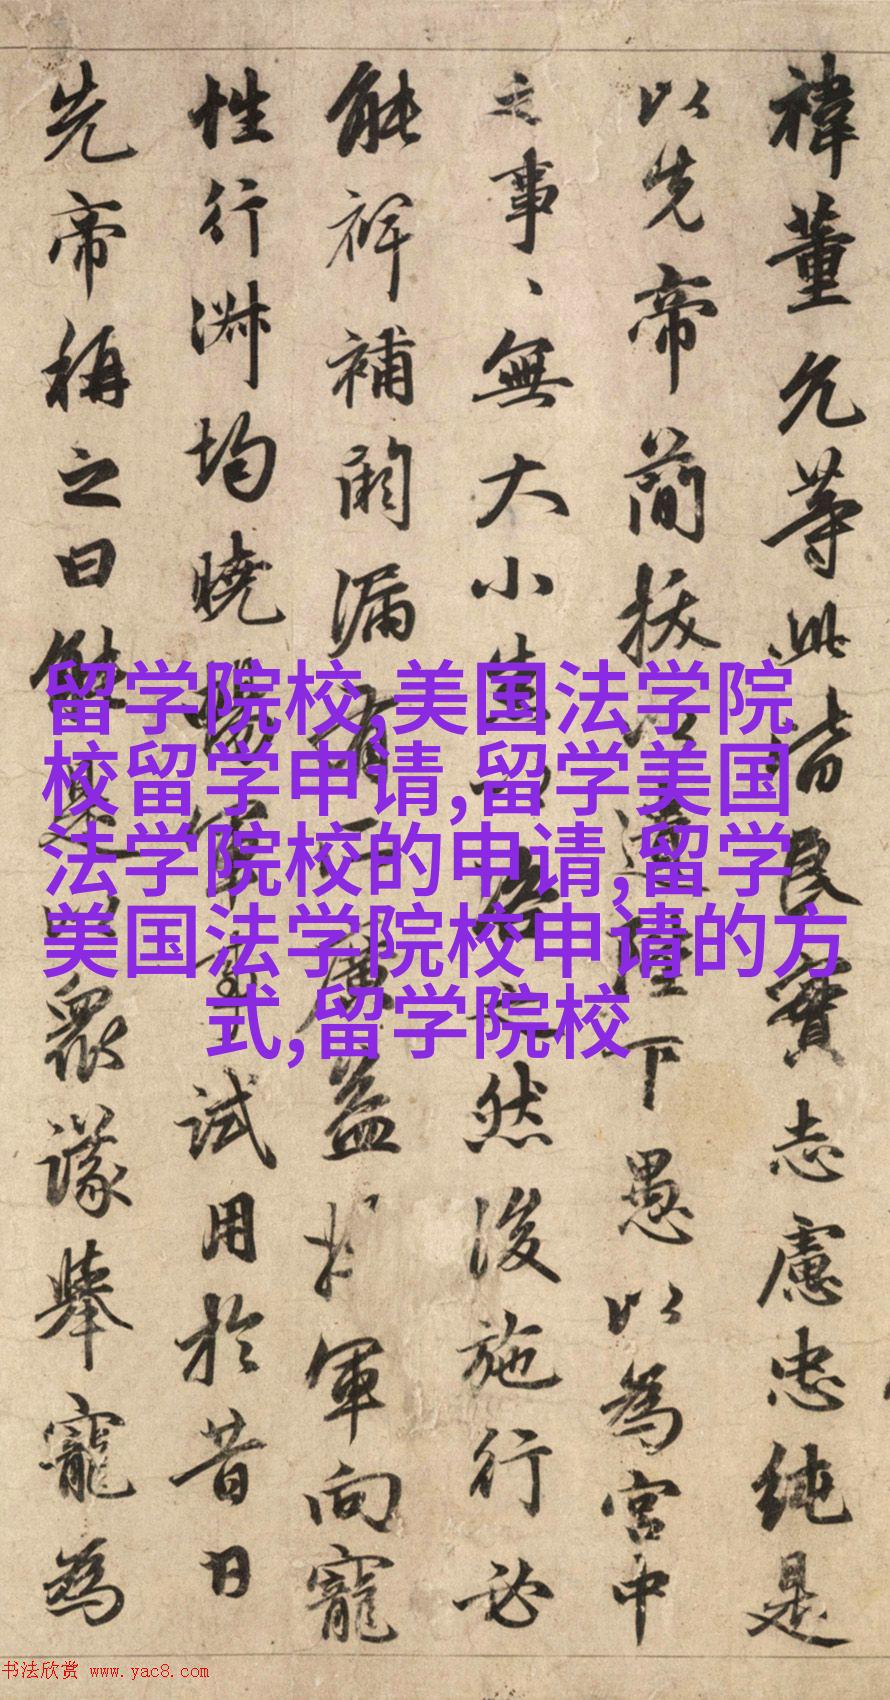 禕董允等此皆良實志慮忠純是
以先帝簡拔以遺陛下愚以為宮中
之事、無大小悉以咨之然後施行必
能裨補闕漏有廣益將軍向寵
性行淑均曉暢軍事試用於昔日
先帝稱之曰能是以衆議舉寵為
留学院校,美国法学院
校留学申请,留学美国
法学院校的申请,留学
美国法学院校申请的方
式,留学院校
书法欣赏 www.yac8.com